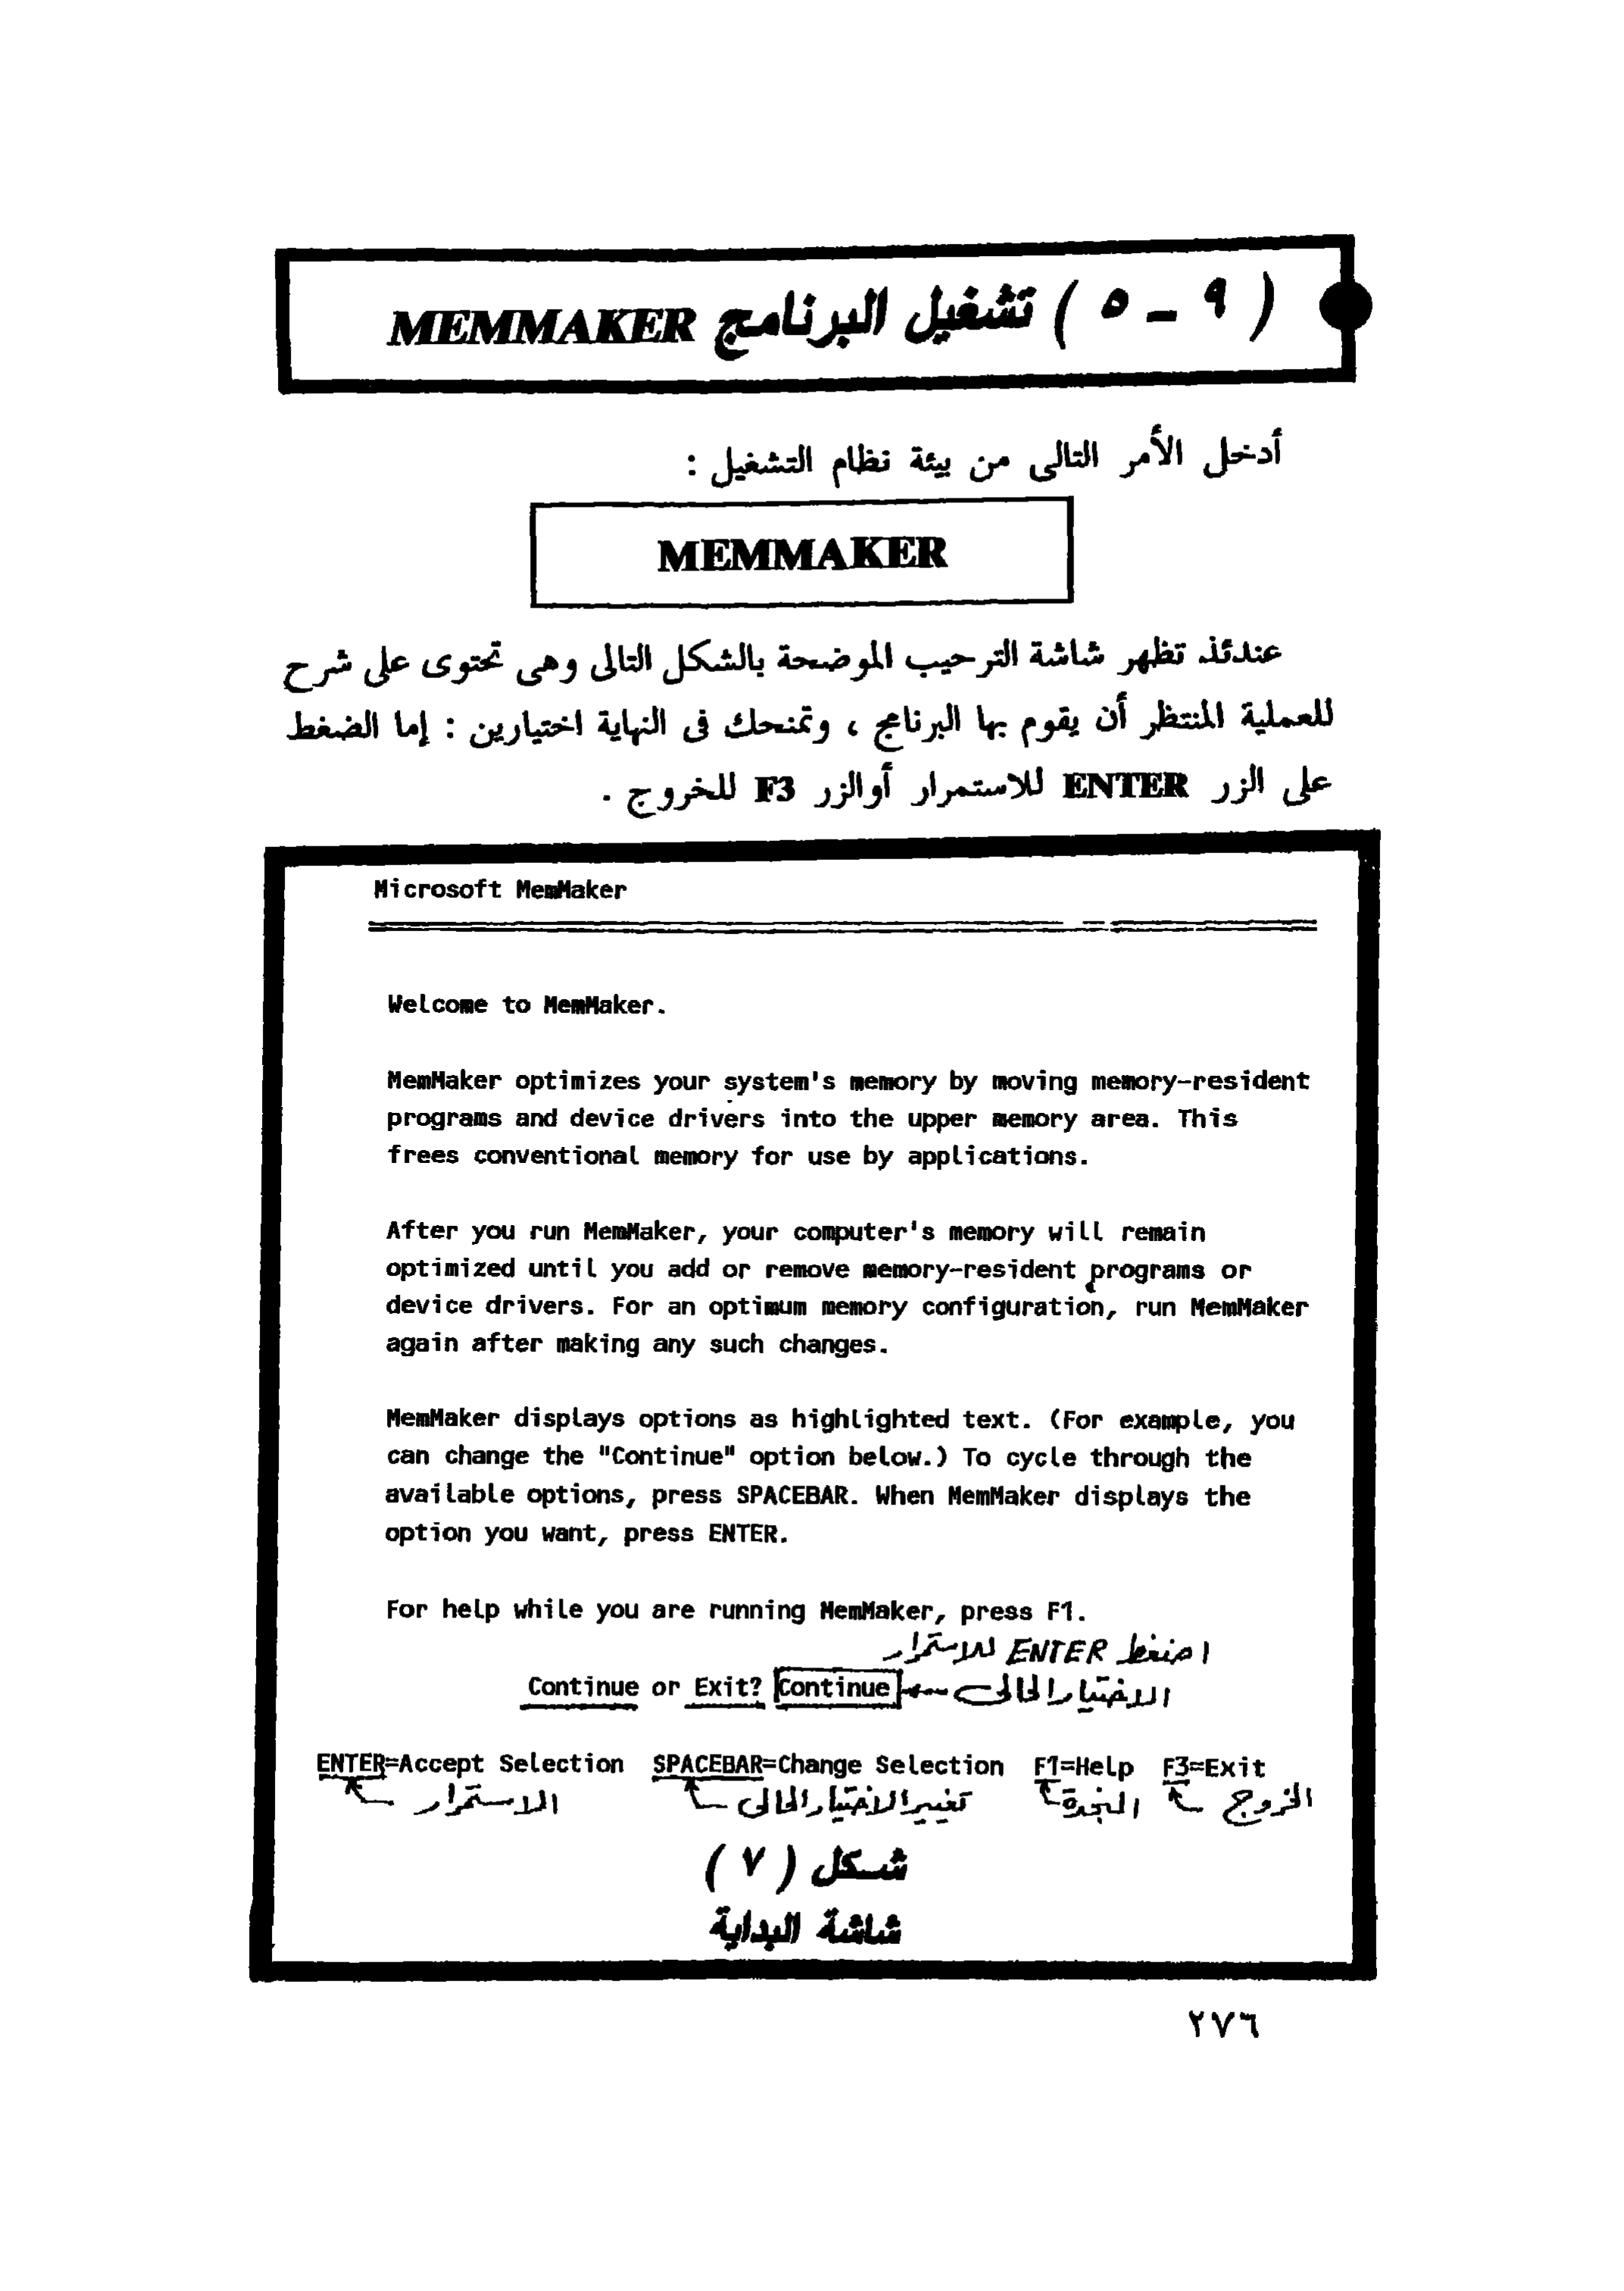 ( ٩ ـ ٥ ) تشغيل البرنامج MEMMAKER
أدخل الأمر التالى من بيئة نظام التشغيل :
MEMMAKER
عندئذ تظهر شاشة الترحيب الموضحة بالشكل التالى وهى تحتوى على شرح
للعملية المنتظر أن يقوم بها البرنامج ، وتمنحك فى النهاية اختيارين : إما الضغط
على الزر ENTER للاستمرار أوالزر F3 للخروج .
Microsoft MemMaker
Welcome to MemMaker.
MemMaker optimizes your system's memory by moving memory-resident
programs and device drivers into the upper memory area. This
frees conventional memory for use by applications.
After you run MemMaker, your computer's memory will remain
optimized until you add or remove memory-resident programs or
device drivers. For an optimum memory configuration, run MemMaker
again after making any such changes.
MemMaker displays options as highlighted text. (For example, you
can change the "Continue" option below.) To cycle through the
available options, press SPACEBAR. When MemMaker displays the
option you want, press ENTER.
For help while you are running MemMaker, press F1.
اضغط ENTER للاستمرار
Continue or Exit? Continue الاختيار الحالى
ENTER=Accept Selection SPACEBAR=Change Selection F1=Help F3=Exit
الاستمرار تغيير الاختيار الحالى النجدة الخروج
شكل ( ٧ )
شاشة البداية
٢٧٦